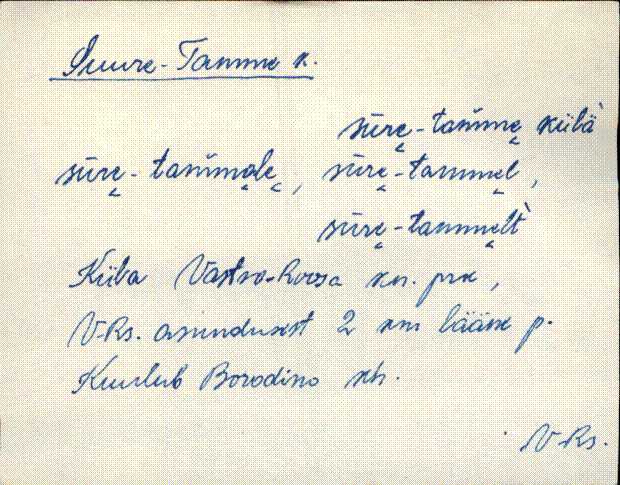 Suure-Tamme k.
sūrę-tam̆mę külä
sūrę-tam̆męlę, sūrę-tammęl,
sūrę-tammęlt̀
Küla Vastse-Roosa kn. prk,
V-Rs. asundusest 2 km lääne p.
Kuulub Borodino kh.
V-Rs.